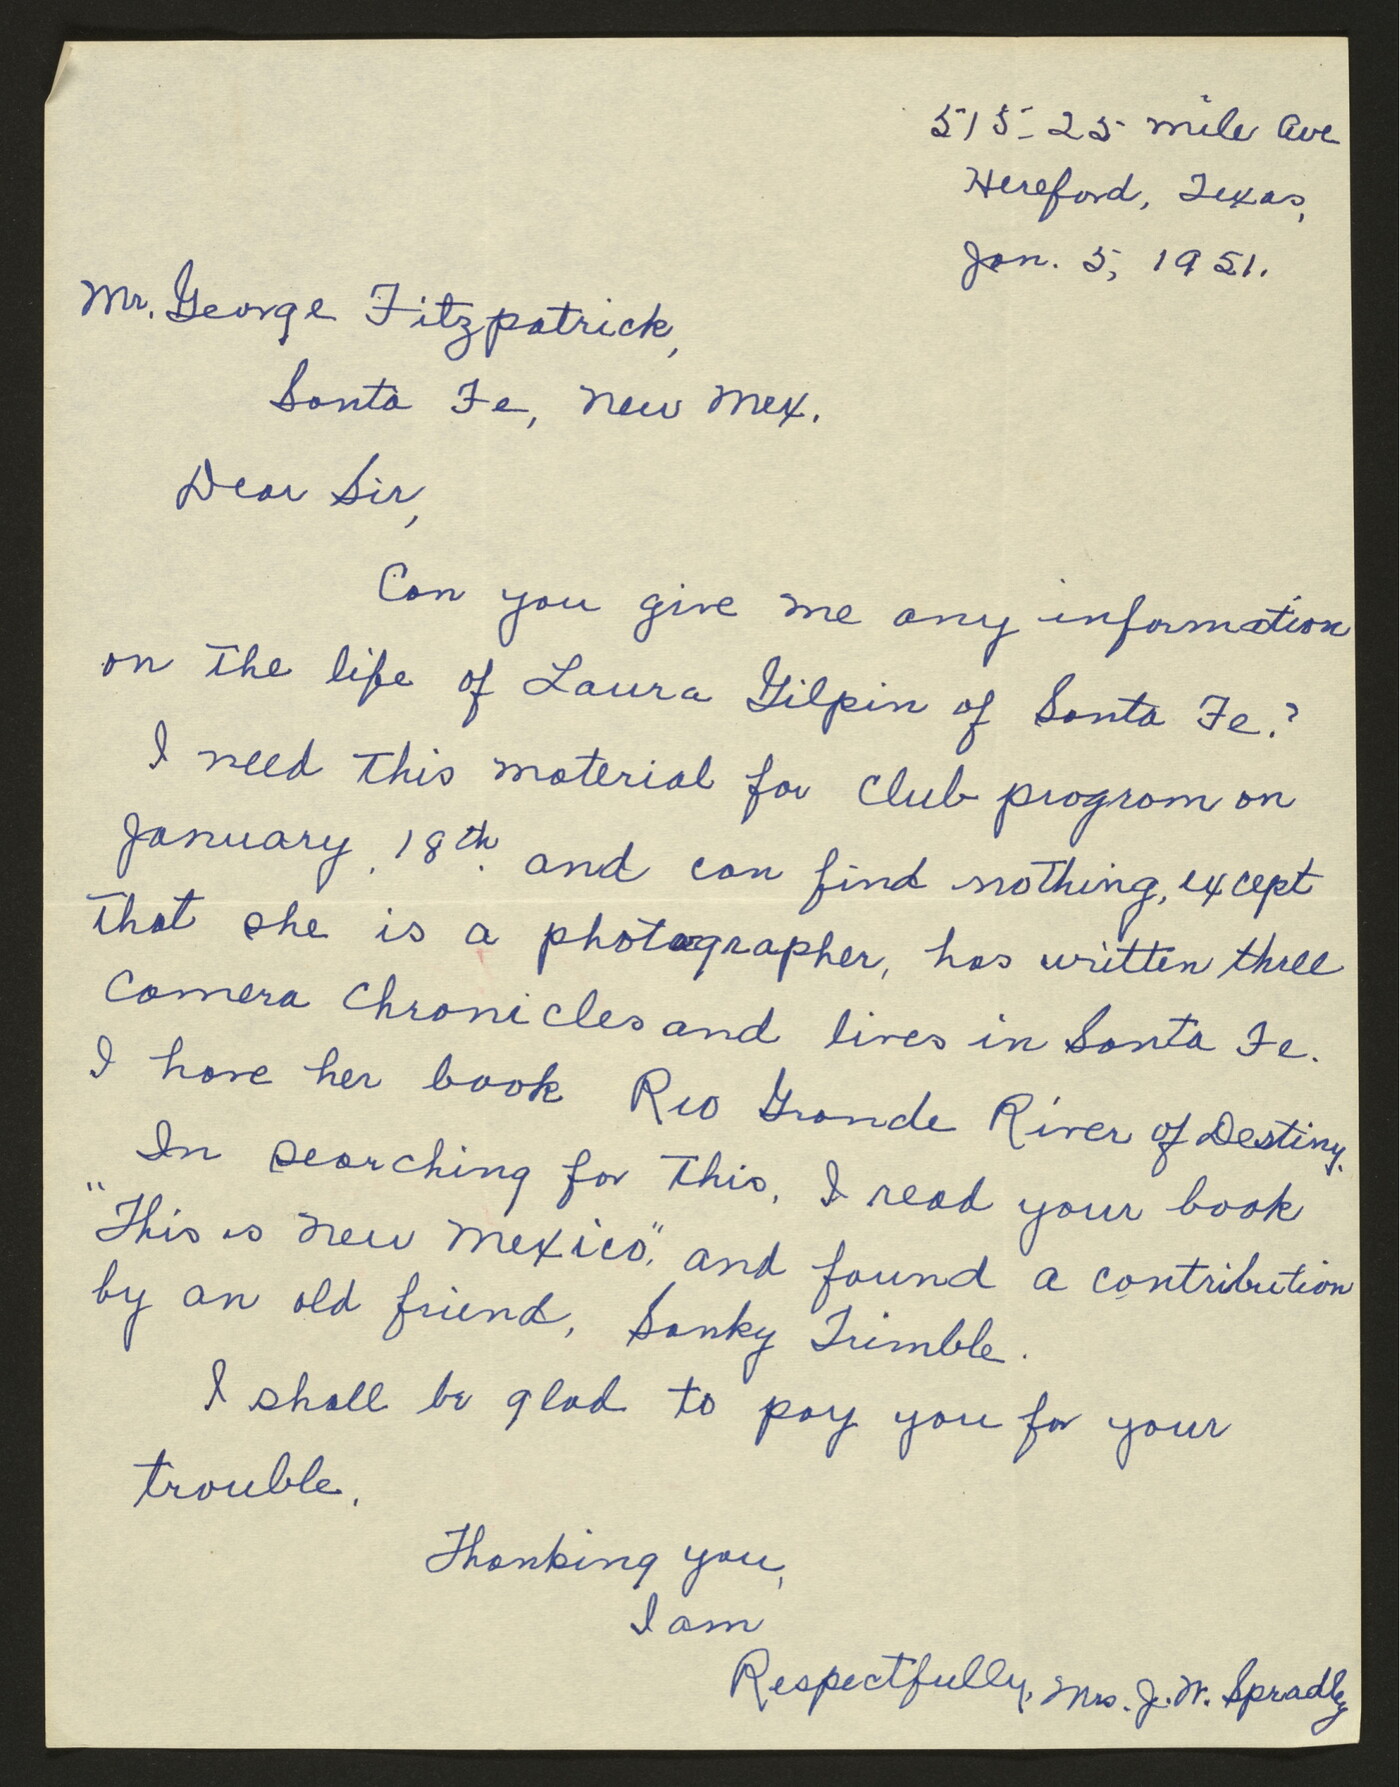 515-25 mile Ave
Hereford, Texas,
Jan. 5, 1951.
Mr. George Fitzpatrick,
Santa Fe, New Mex.
Dear Sir,
Can you give me any information
on the life of Laura Gilpin of Santa Fe.?
I need this material for club program on
January 18th. and can find nothing, except
that she is a photographer, has written three
Camera Chronicles and lives in Santa Fe.
I have her book Rio Grande River of Destiny.
In searching for this, I read your book
"This is New Mexico", and found a contribution
by an old friend, Sanky Trimble.
I shall be glad to pay you for your
trouble.
Thanking you,
I am
Respectfully, Mrs. J. W. Spradley